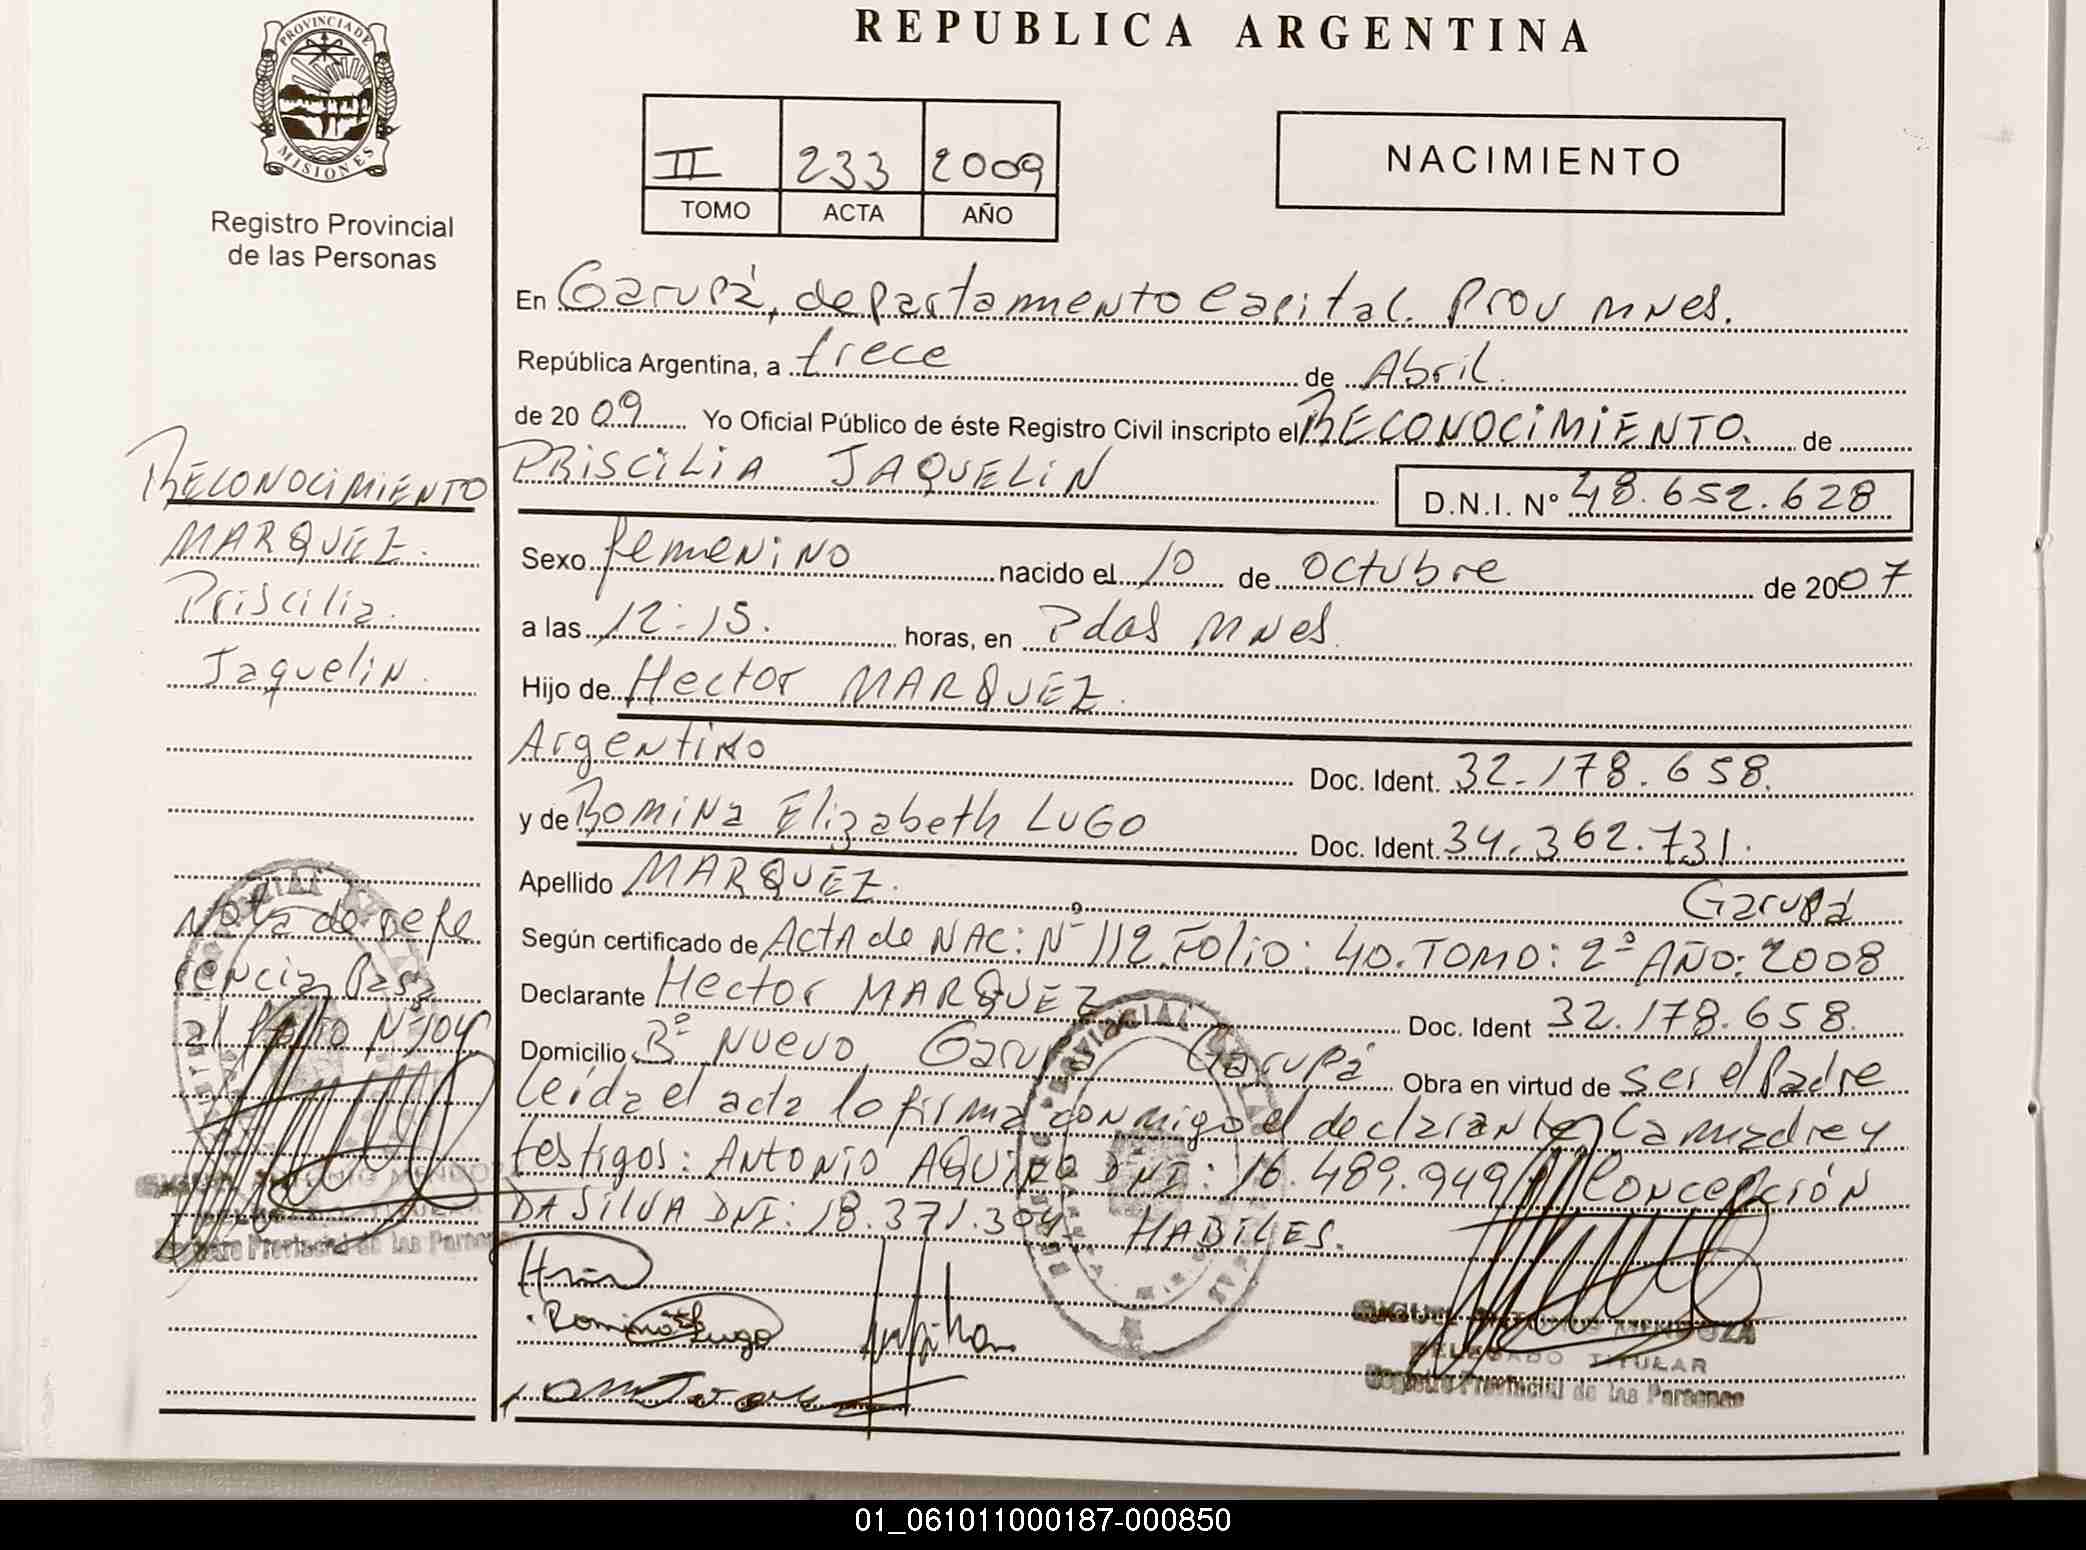 PROVINCIA DE
MISIONES
Registro Provincial
de las Personas
REPUBLICA ARGENTINA
II 233 2009
TOMO ACTA AÑO
NACIMIENTO
En Garupá, departamento Capital. Prov Mnes.
República Argentina, a trece de Abril.
de 2009 Yo Oficial Público de éste Registro Civil inscripto el RECONOCIMIENTO. de
PRISCILIA JAQUELIN D.N.I. Nº 48.652.628
Sexo femenino nacido el 10 de octubre de 2007
a las 12:15. horas, en Pdas Mnes.
Hijo de Hector MARQUEZ.
Argentino Doc. Ident. 32.178.658.
y de Romina Elizabeth LUGO Doc. Ident. 34.362.731.
Apellido MARQUEZ. Garupá
Según certificado de Acta de NAC: Nº 112. Folio: 40. TOMO: 2º AÑO: 2008
Declarante Hector MARQUEZ Doc. Ident 32.178.658.
Domicilio Bº Nuevo Garupá Garupá Obra en virtud de ser el Padre
Leída el acta lo firma conmigo el declarante, La madre y
testigos: Antonio AQUINO DNI: 16.489.949 Concepción
DA SILVA DNI: 18.371.304 HABILES.
Romina Lugo
MENDOZA
DELEGADO TITULAR
Registro Provincial de las Personas
RECONOCIMIENTO
MARQUEZ.
Priscilia.
Jaquelin.
Nota de refe
rencia Pasa
al folio Nº 104
TITULAR
Registro Provincial de las Personas
01_061011000187-000850